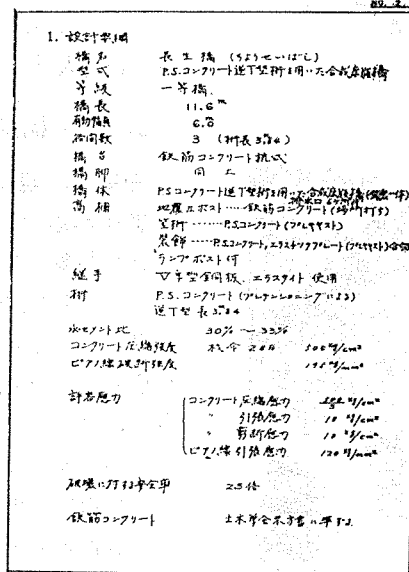 NO. 2.
1. 設計要綱
橋名 長生橋 (ちようせいばし)
型式 P.S.コンクリート逆T型桁を用いた合成床版橋
等級 一等橋
橋長 11.6m
有効幅員 6.0m
径間数 3 (桁長 3m84)
橋台 鉄筋コンクリート杭式
橋脚 同上
橋体 P.S.コンクリート逆T型桁を用いた合成床版橋
高欄 地覆及ポスト……鉄筋コンクリート(場所打ち)
笠桁……P.S.コンクリート(プレキャスト)
装飾……P.S.コンクリート, エラスチックプレート(プレキャスト)
ランプポスト付
継手 ▽字型金銅板、エラスタイト 使用
桁 P.S.コンクリート(プレテンショニングによる)
逆T型 長 3m84
水セメント比 30% ~ 33%
コンクリート圧縮強度 材令 28日 500 kg/cm²
ピアノ線破断強度 195 kg/mm²
許容応力 コンクリート圧縮応力 kg/cm²
〃 引張応力 10 kg/cm²
〃 剪断応力 10 kg/cm²
ピアノ線引張応力 120 kg/mm²
破壊に対する安全率 2.5倍
鉄筋コンクリート 土木学会示方書に準する